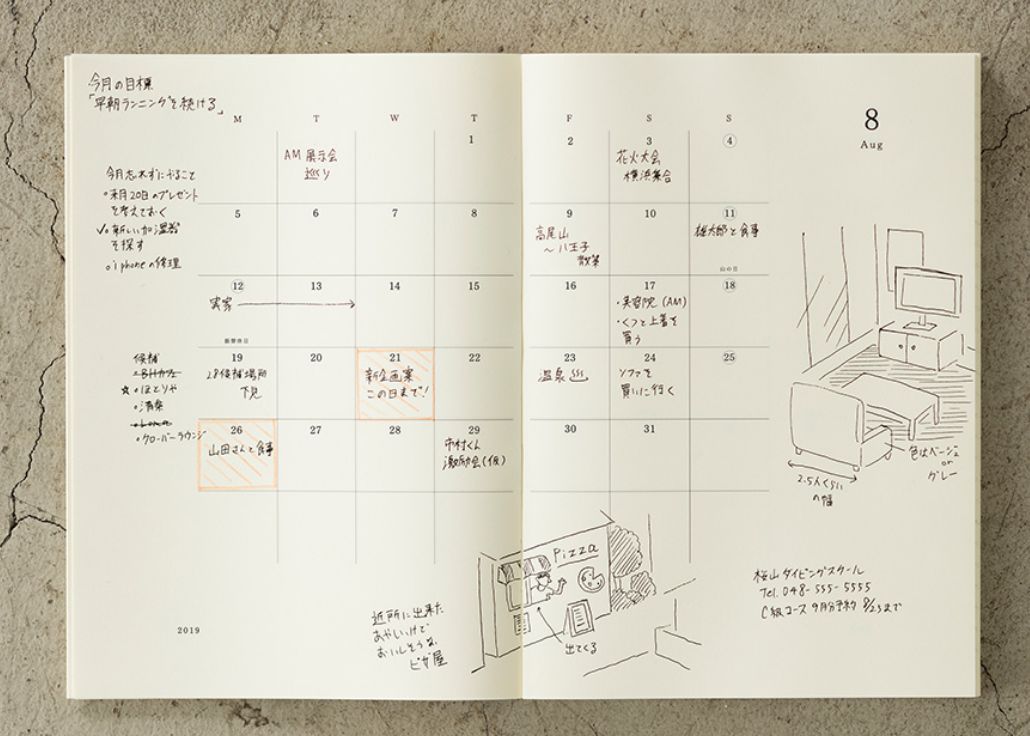 今月の目標
「早朝ランニングを続ける」
M T W T F S S
8
Aug
今月忘れずにやること
・来月20日のプレゼント
を考えておく
✓・新しい加湿器
を探す
・iphoneの修理
1 2 3 ④
AM 展示会
巡り
花火大会
横浜集合
5 6 7 8 9 10 ⑪
高尾山
〜八王子
散策
雄太郎と食事
山の日
⑫ 13 14 15 16 17 ⑱
実家
振替休日
・美容院(AM)
・くつと上着を
買う
19 20 21 22 23 24 ㉕
28候補場所
下見
新企画案
この日まで!
温泉
ソファを
買いに行く
候補
・BHカフェ
☆・ほとりや
・清楽
・クローバーラウンジ
26 27 28 29 30 31
山田さんと食事
市村くん
激励会(仮)
色はベージュ
or
グレー
2.5人くらい
の幅
Pizza
出てくる
近所に出来た
あやしいけど
おいしそうな
ピザ屋
桜山ダイビングスクール
Tel. 048-555-5555
C級コース 9月分予約 8/25まで
2019